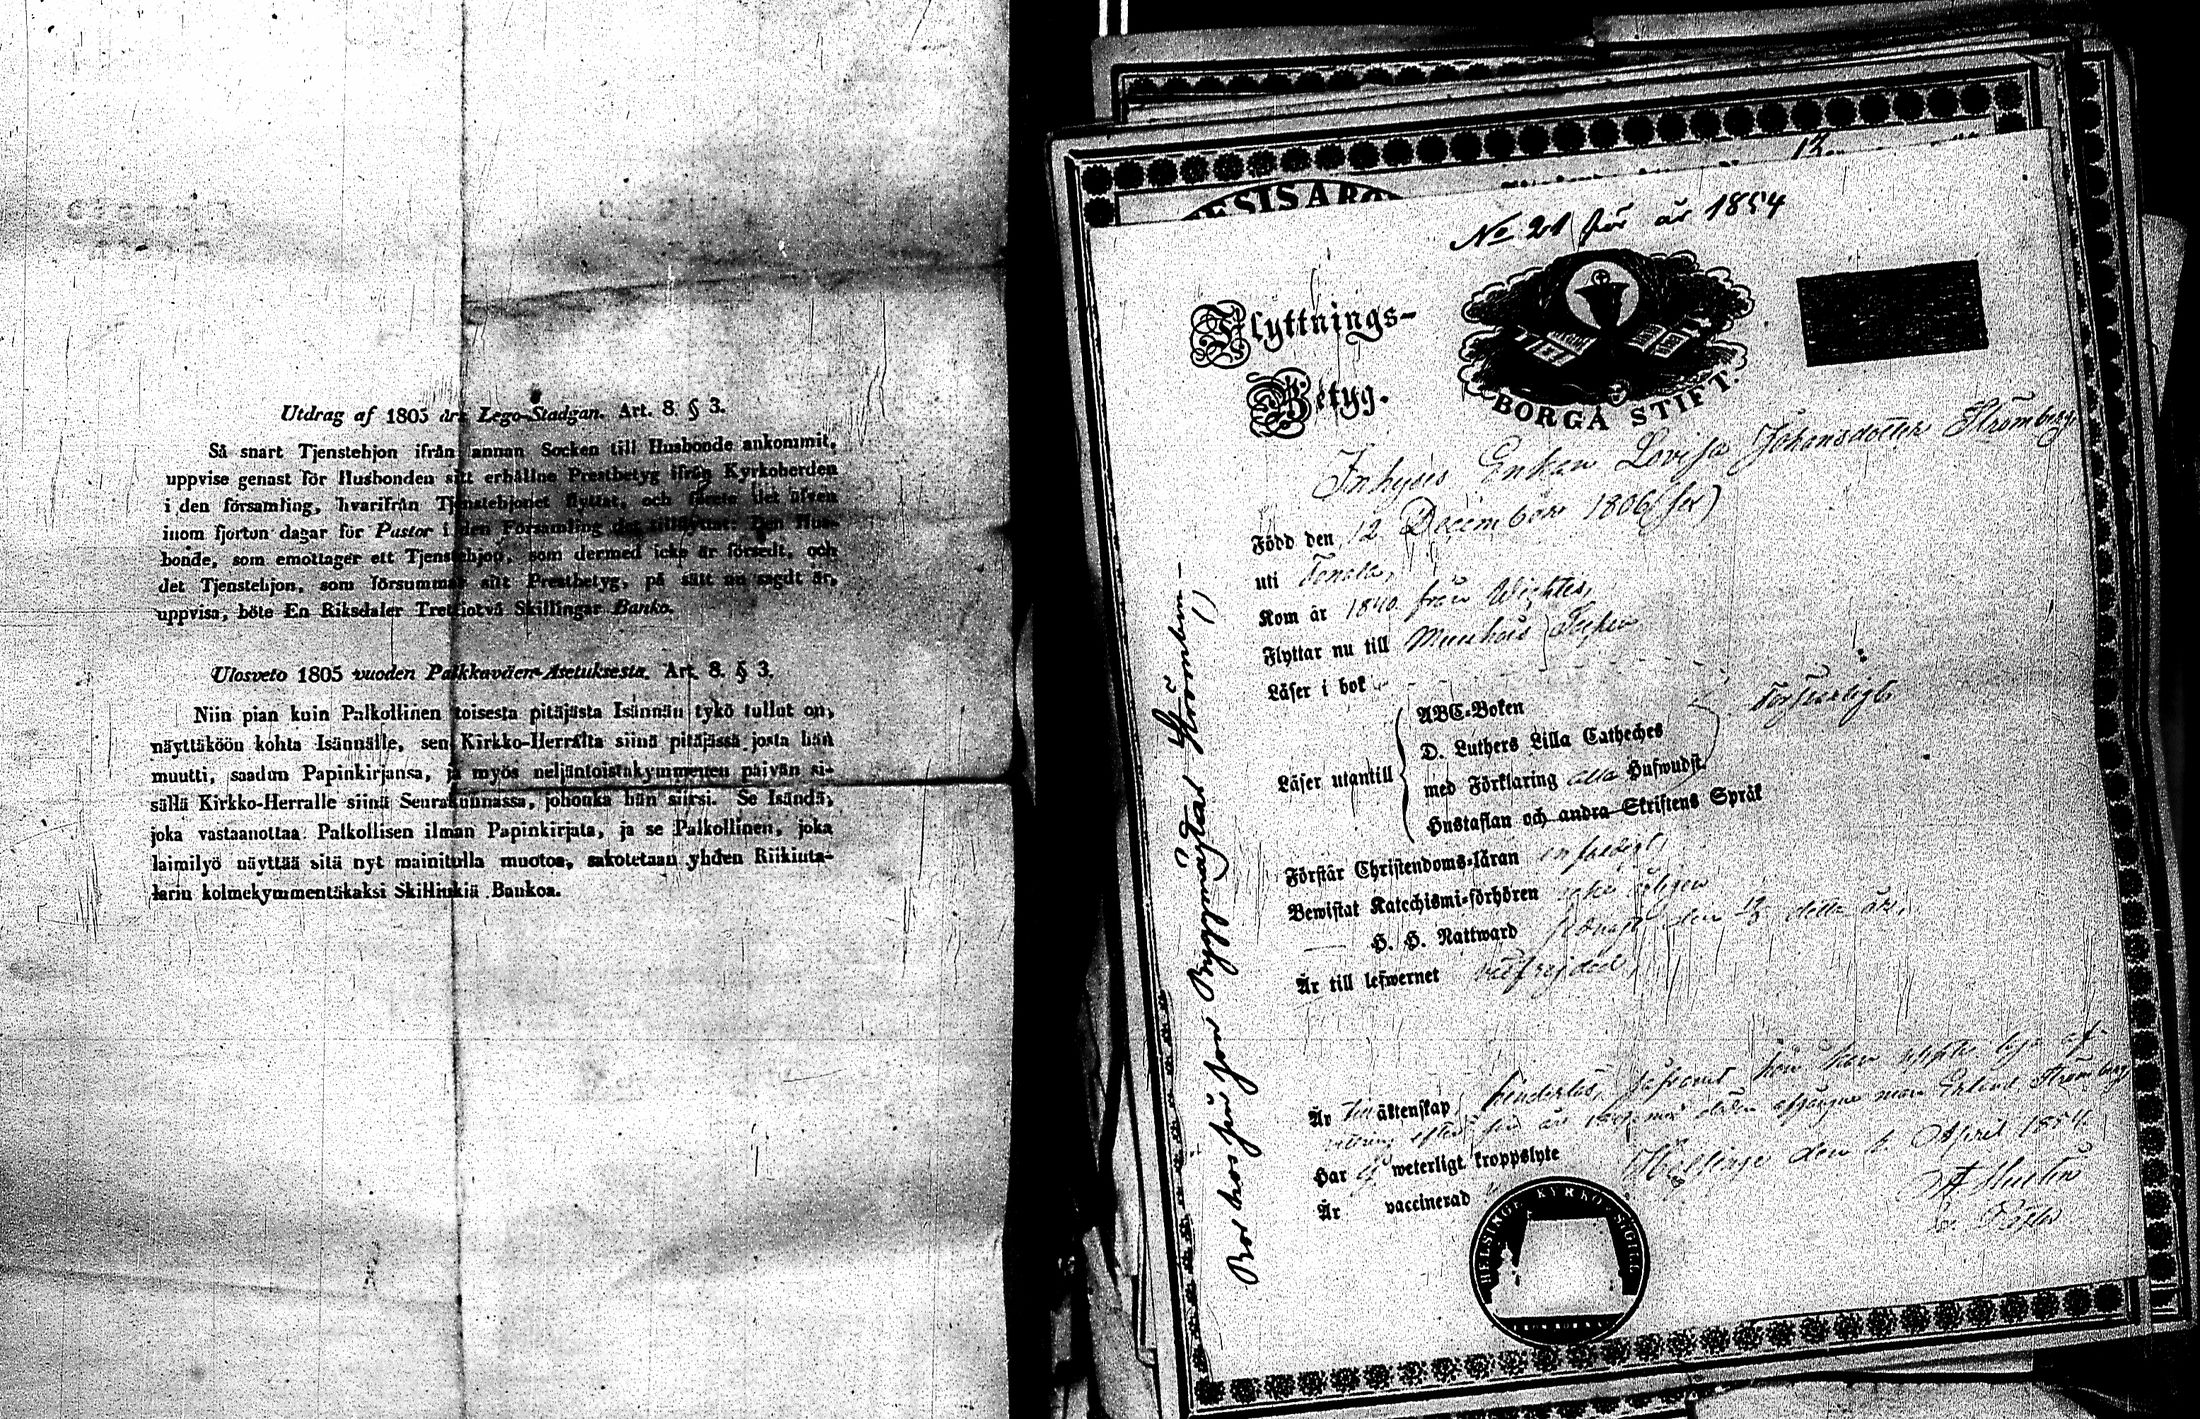 Utdrag af 1805 års Lego-Stadgan. Art. 8. § 3.
Så snart Tjenstehjon ifrån annan Socken till Husbonde ankommit,
uppvise genast för Husbonden sitt erhållne Prestbetyg ifrån Kyrkoherden
i den församling, hvarifrån Tjenstehjonet flyttat, och förete det äfven
inom fjorton dagar för Pastor i den Församling det tillflyttat: Den Hus-
bonde, som emottager ett Tjenstehjon, som dermed icke är försedt, och
det Tjenstehjon, som försummar sitt Prestbetyg, på sätt nu sagdt är,
uppvisa, böte En Riksdaler Trettiotvå Skillingar Banko.
Ulosveto 1805 vuoden Palkkaväen-Asetuksesta. Art. 8. § 3.
Niin pian kuin Palkollinen toisesta pitäjästa Isännän tykö tullut on,
näyttäköön kohta Isännälle, sen Kirkko-Herralta siinä pitäjässä josta hän
muutti, saadun Papinkirjansa, ja myös neljäntoistakymmenen päivän si-
sällä Kirkko-Herralle siinä Seurakunnassa, johonka hän siirsi. Se Isändä,
joka vastaanottaa Palkollisen ilman Papinkirjata, ja se Palkollinen, joka
laimilyö näyttää sitä nyt mainitulla muotoa, sakotetaan yhden Riikinta-
larin kolmekymmentäkaksi Skillinkiä Bankoa.
13
No 21 för år 1854
Flyttnings-
Betyg.
BORGÅ STIFT.
Inhyses Enkan Lovisa Johansdotter Strömberg
Född den 12 December 1806 (sex)
uti Tenala,
Kom år 1840 från Wichtis,
Flyttar nu till Munkvis Socken
Läser i bok
Läser utantill
ABC-Boken
D. Luthers Lilla Catheches
med Förklaring alla Hufwudst.
Hustaflan och andra Skriftens Språk
försvarligt
Förstår Christendoms-läran enfaldigt,
Bewistat Katechismi-förhören
H. H. Nattward sednast den detta år,
Är till lefwernet välfrejdad,
Är till äktenskap hinderlös, såframt hon kan
efter sin år man Strömberg
Har ej weterligt kroppslyte
Helsinge den April 1854.
Är vaccinerad
HELSINGE KYRKO SIGILL
Bor hos sin son Byggmästar Strömberg